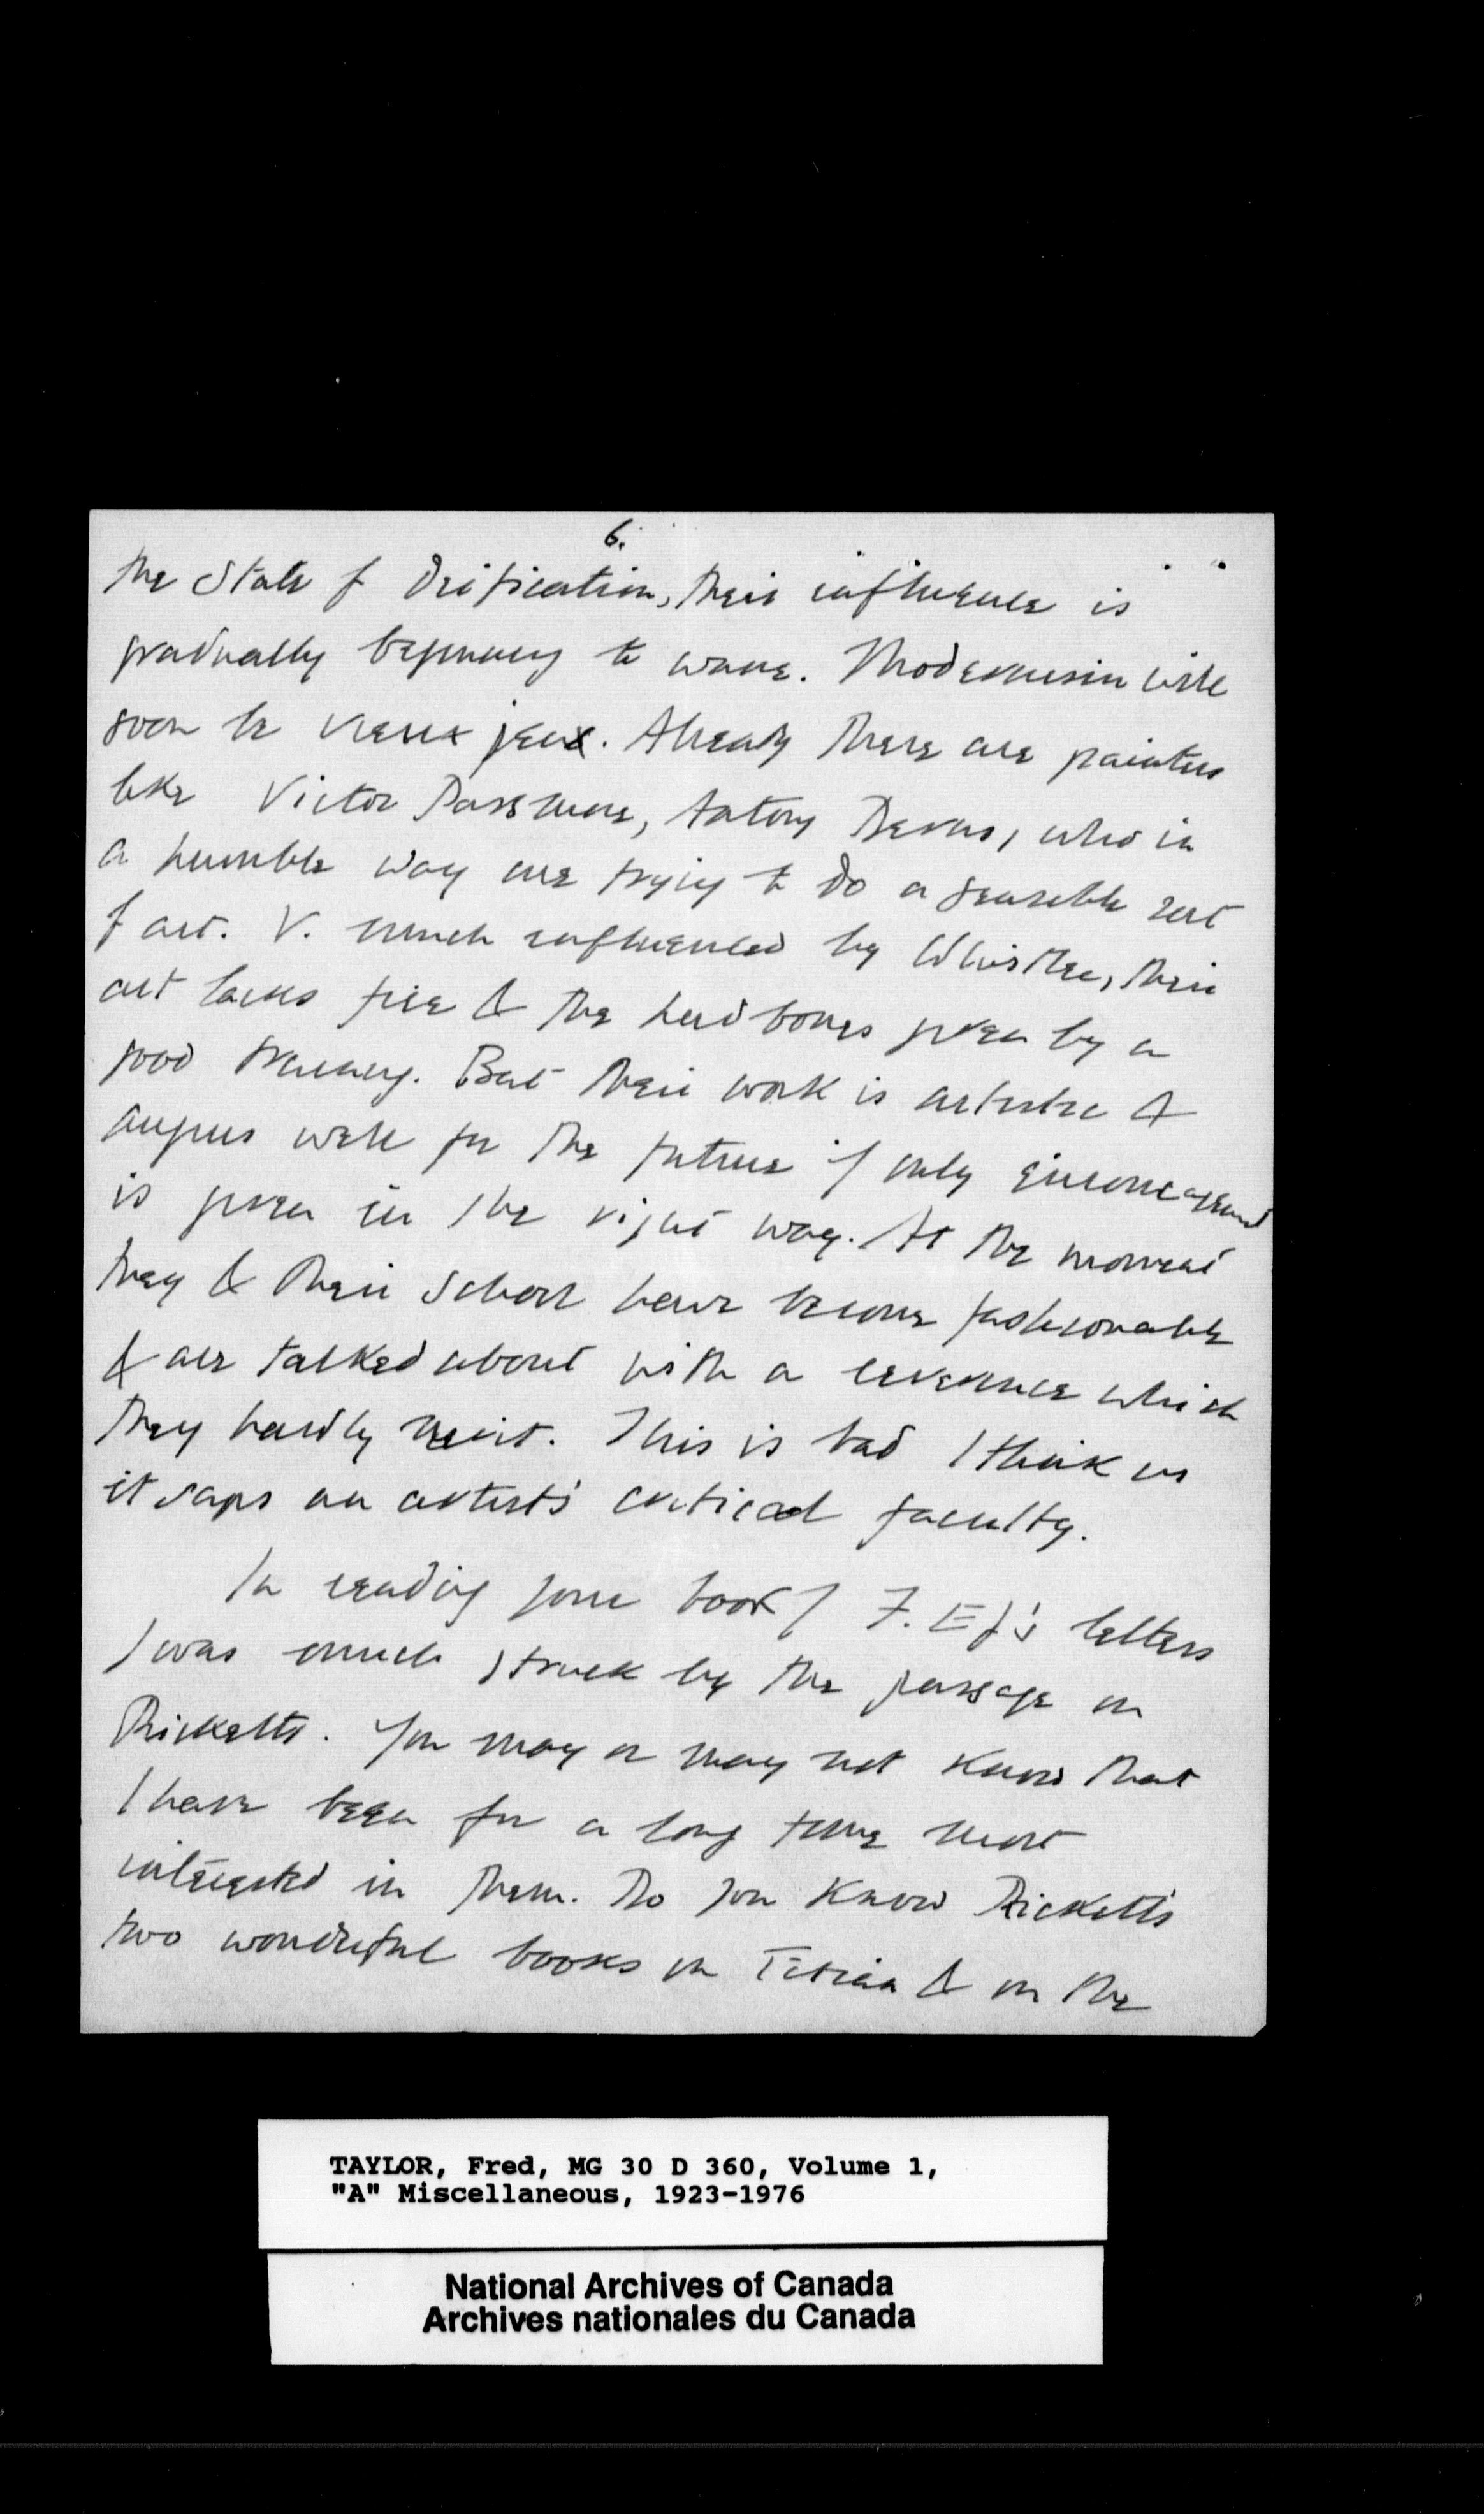 6.
the State of Deification, their influence is
gradually beginning to wane. Modernism will
soon be vieux jeux. Already there are painters
like Victor Passmore, Antony Devas, who in
a humble way are trying to do a sensible sort
of art. V. much influenced by Whistler, their
art lacks fire & the hard bones given by a
good training. But their work is artistic &
augurs well for the future if only encouragement
is given in the right way. At the moment
they & their School have become fashionable
& are talked about with a reverence which
they hardly merit. This is bad I think as
it saps an artist's critical faculty.
In reading your book of F. EJ's letters
I was much struck by the passage on
Ricketts. You may or may not know that
I have been for a long time most
interested in them. Do you know Ricketts
two wonderful books on Titian & on the
TAYLOR, Fred, MG 30 D 360, Volume 1,
"A" Miscellaneous, 1923-1976
National Archives of Canada
Archives nationales du Canada